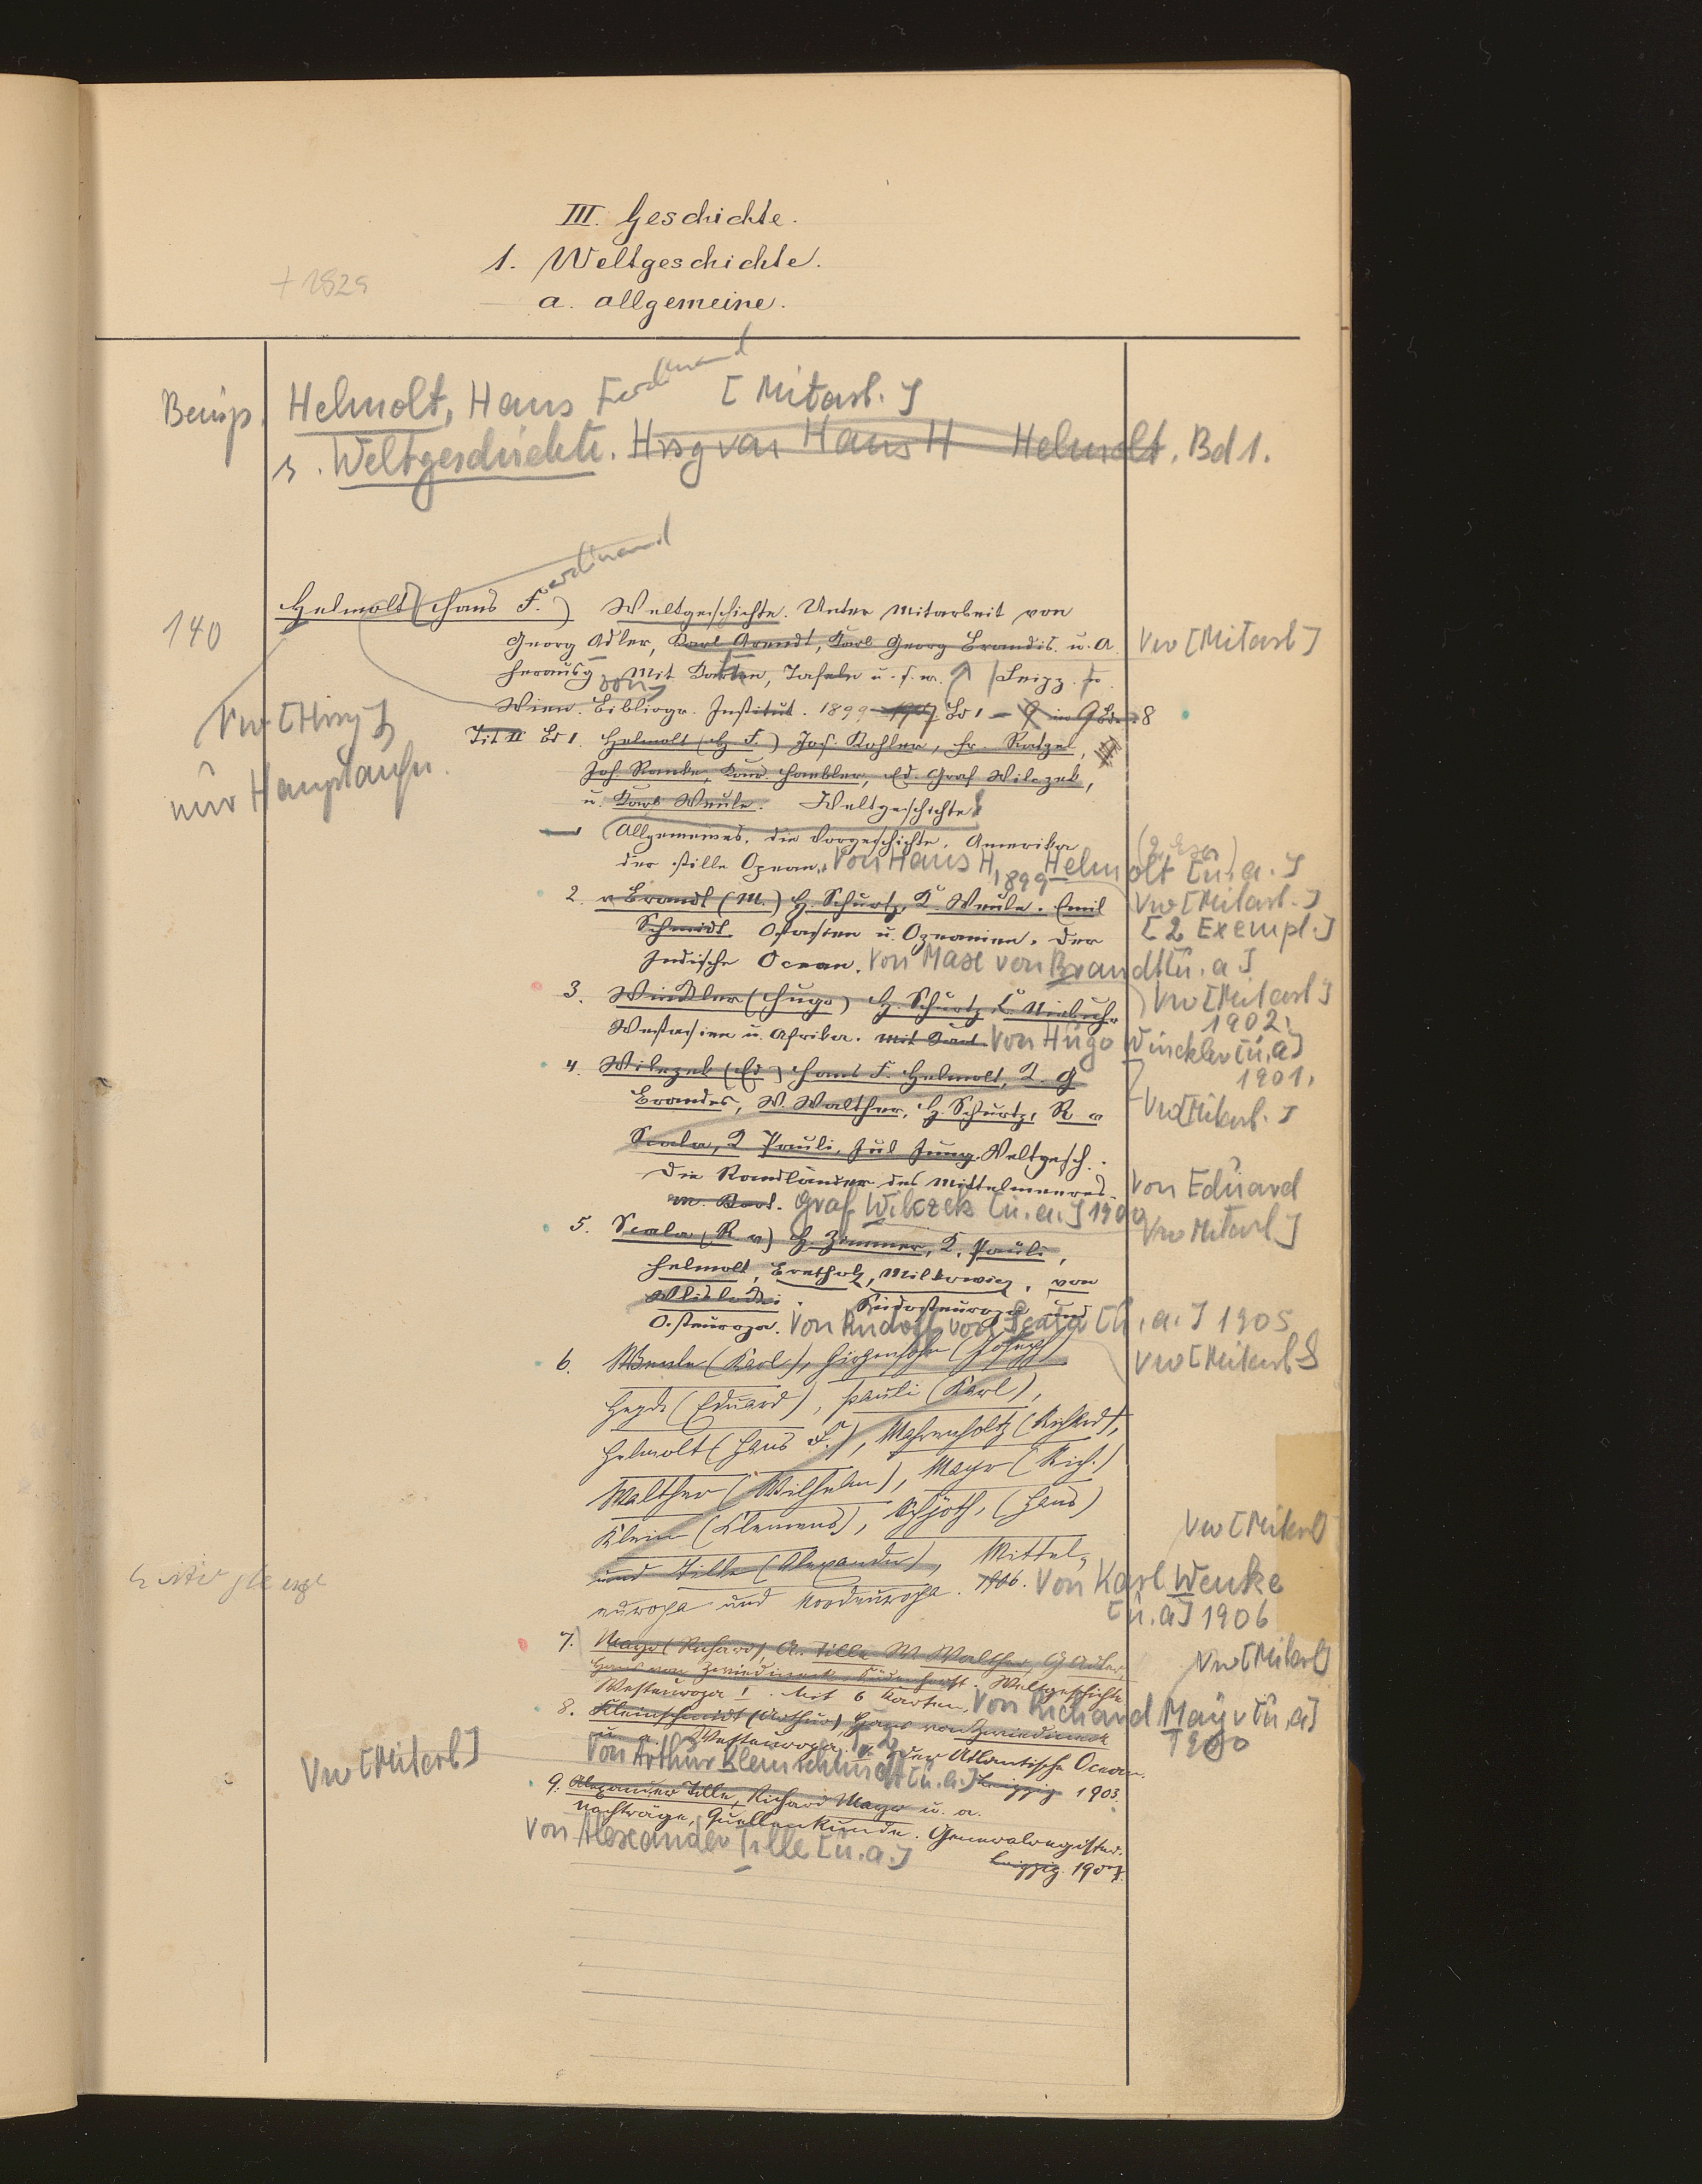 III. Geschichte.
1. Weltgeschichte.
a. allgemeine.
+ 1829
Beisp. Helmolt, Hans Ferdinand [Mitarb.]
s. Weltgeschichte. Hrsg von Hans H Helmolt. Bd 1.
140 Helmolt (Hans F.) Ferdinand Weltgeschichte. Unter Mitarbeit von
Georg Adler, Karl Arendt, Karl Georg Brandis. u. A. Vw [Mitarb]
herausg von Mit Karten, Tafeln u. s. w. Leipz. u.
Wien. Bibliogr. Institut. 1899-1907 Bd 1-9 in 9 Bd. 8
Vw [Hrsg]
nur Hauptaufn.
Tit II Bd 1. Helmolt (H F.) Jos. Kohler, Fr. Ratzel,
Joh. Ranke, Konr. Haebler, Ed. Graf Wilczek,
u. Karl Weule. Weltgeschichte
Allgemeines, die Vorgeschichte. Amerika
der stille Ozean. Von Hans H. Helmolt [u. a.]
1899
2. v Brandt (M.) H. Schurtz, K. Weule. Emil Vw [Mitarb.]
Schmidt. Ostasien u. Ozeanien. Der [2 Exempl.]
Indische Ocean. Von Max von Brandt [u. a]
3. Winckler (Hugo) H. Schurtz C. Niebuhr Vw [Mitarb]
1902.
Westasien u. Afrika. mit Kart. Von Hugo Winckler [u. a]
1901.
4. Wilczek (Ed) Hans F. Helmolt, K. G
Brandis, W. Walther, H. Schurtz, R v Vw [Mitarb.]
Scala, K Pauli, Jul Jung. Weltgesch.:
Die Randländer des Mittelmeeres. Von Eduard
m. Kart. Graf Wilczek [u. a.] 1900
5. Scala (R v) H. Zimmer, K. Pauli, Vw Mitarb]
Helmolt, Bretholz, Milkowicz, von
Wlislocki. Südosteuropa und
Osteuropa. Von Rudolf von Scala [u. a.] 1905
6. Weule (Karl), Girgensohn (Joseph) Vw [Mitarb]
Heyck (Eduard), Pauli (Karl),
Helmolt (Hans F.), Mahrenholtz (Richard),
Walther (Wilhelm), Mayr (Rich.)
Klein (Clemens), Schjöth, (Hans)
Vw [Mitarb]
und Tille (Alexander), Mittel-
europa und Nordeuropa. 1906. Von Karl Weule
[u. a] 1906
7. Mayr (Richard) A. Tille W. Walther, G Adler, Vw [Mitarb]
Hans von Zwiedineck-Südenhorst. Weltgeschichte
Westeuropa I. Mit 6 Karten. Von Richard Mayr [u. a]
1900
8. Kleinschmidt (Arthur) Hans von Zwiedineck
u. a. Westeuropa. T. 2 Der Atlantische Ocean.
Vw [Mitarb] Von Arthur Kleinschmidt [u. a.] Leipzig 1903.
9. Alexander Tille, Richard Mayr u. a.
Nachträge, Quellenkunde. Generalregister.
Von Alexander Tille [u. a.] Leipzig 1907.